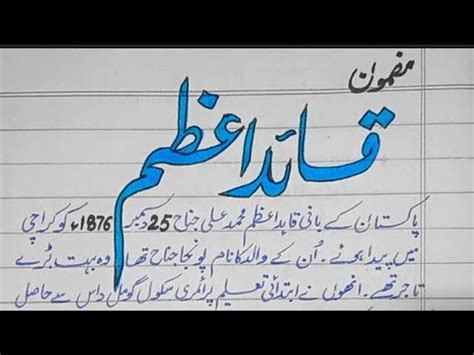 مضمون
قائداعظم
پاکستان کے بانی قائداعظم محمد علی جناح 25 دسمبر 1876ء کو کراچی
میں پیدا ہوئے۔ اُن کے والد کا نام پونجا جناح تھا وہ بہت بڑے
تاجر تھے۔ انھوں نے ابتدائی تعلیم پرائمری سکول گومل داس سے حاصل